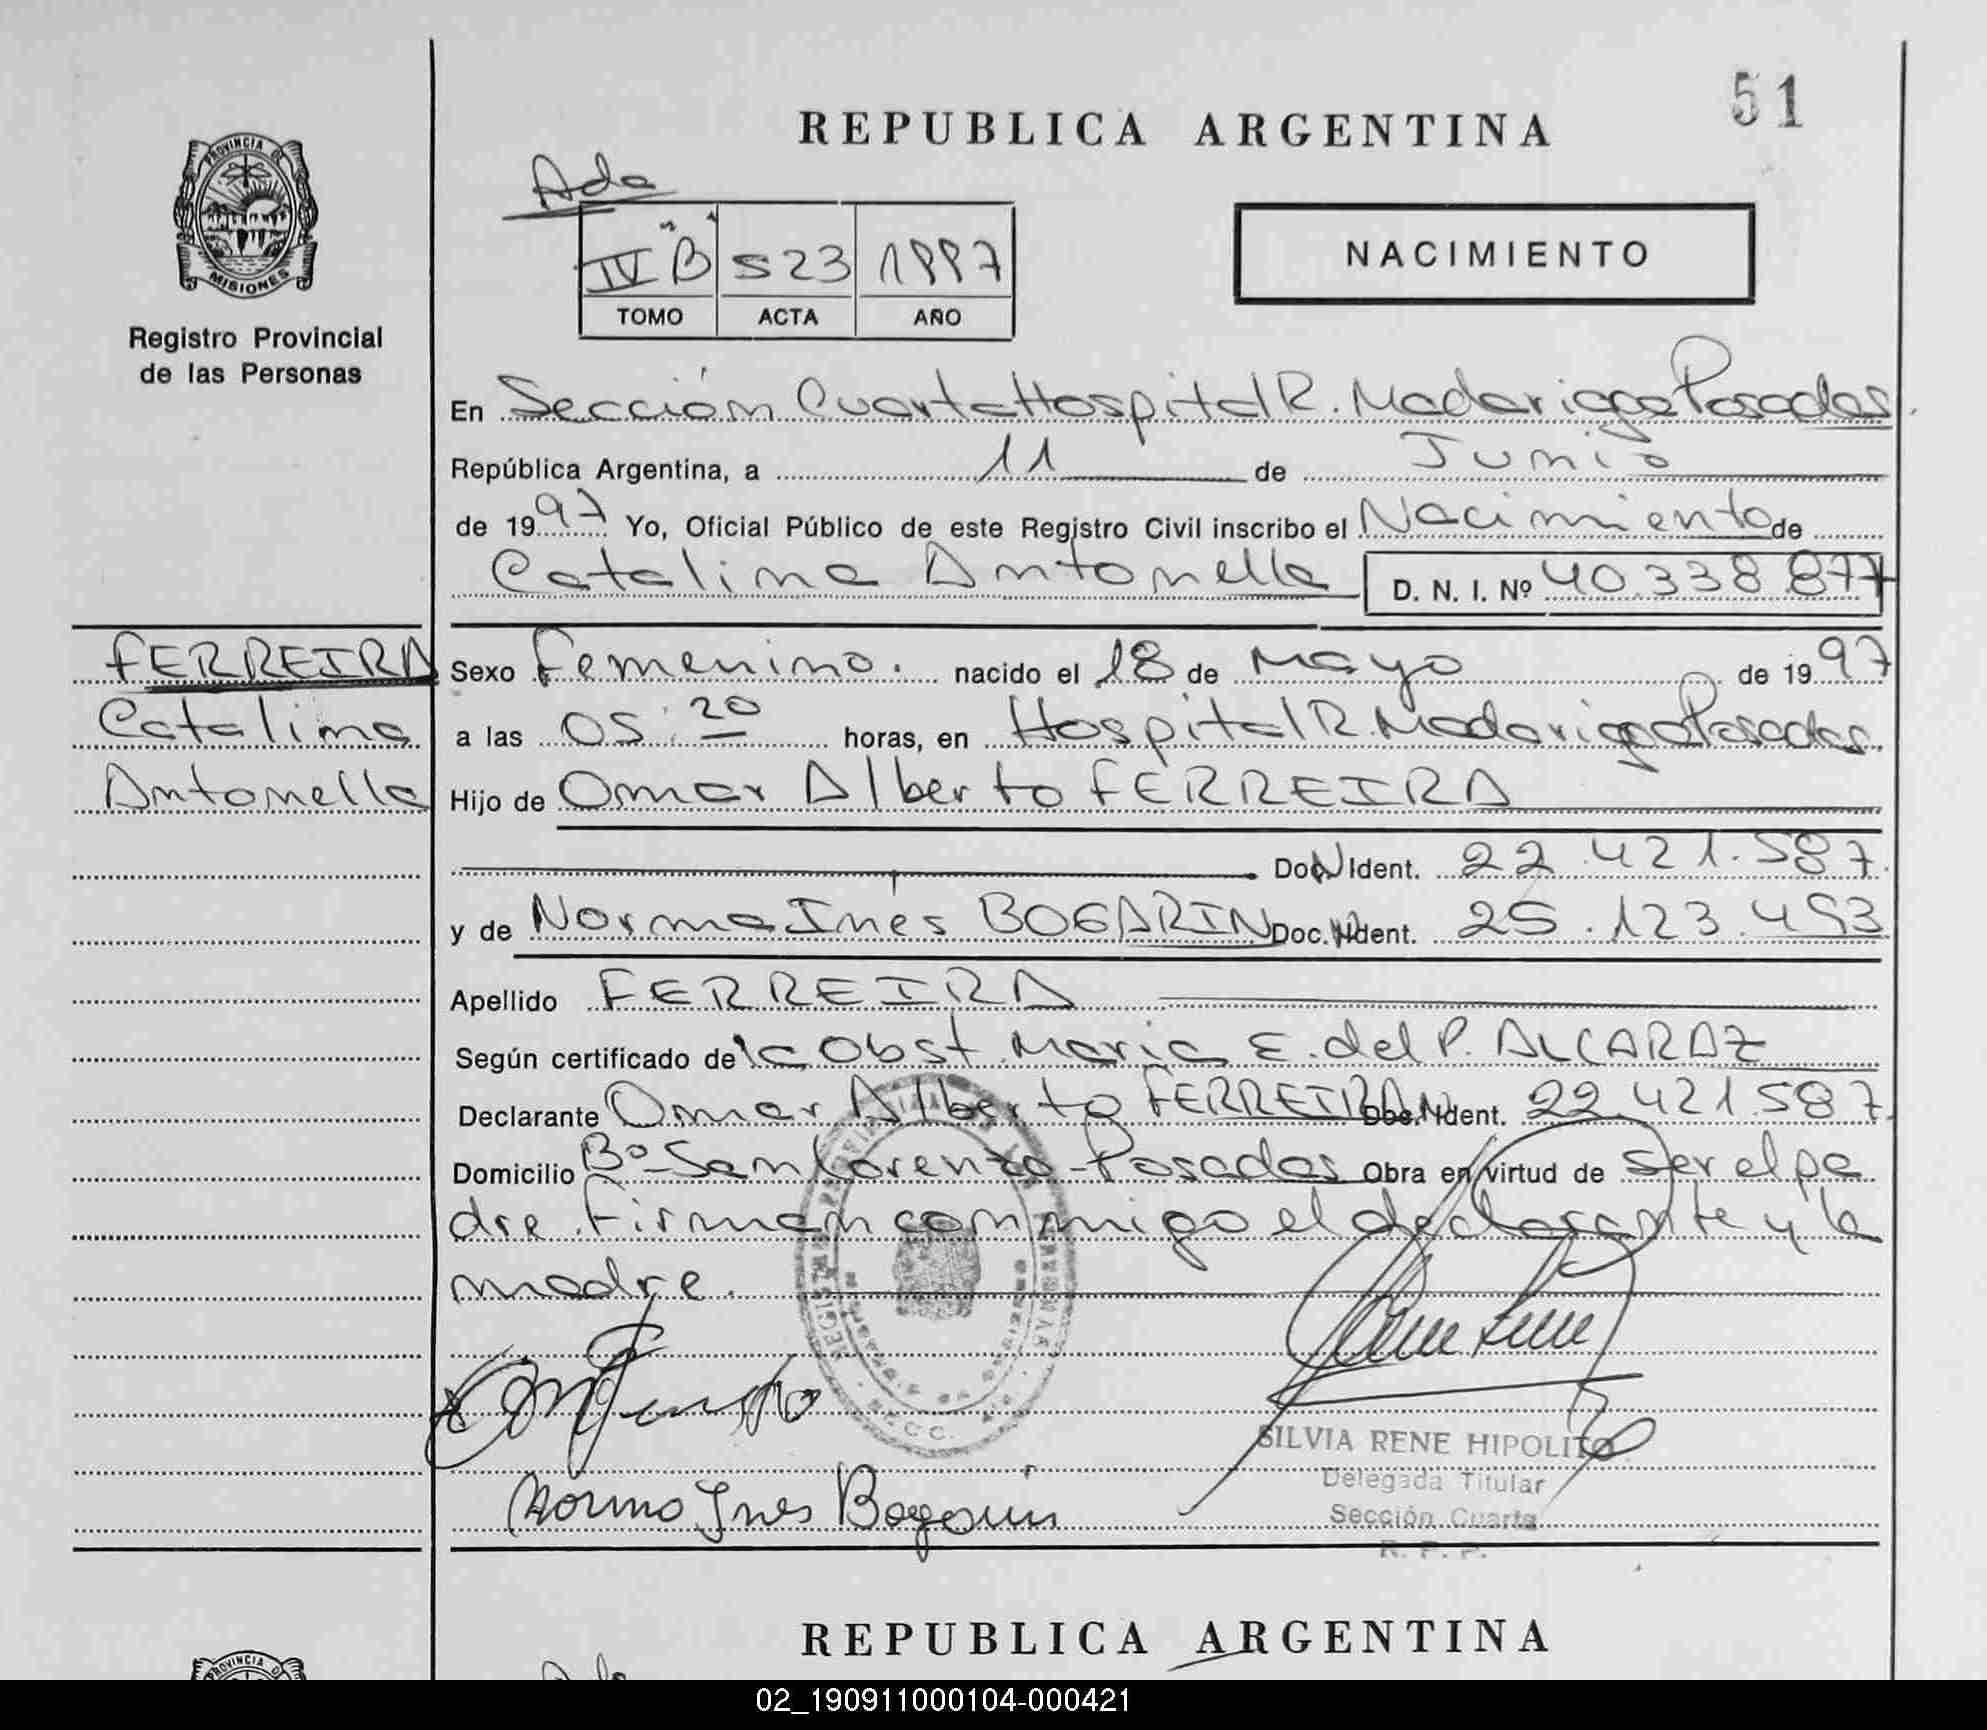 51
REPUBLICA ARGENTINA
PROVINCIA DE
MISIONES
Registro Provincial
de las Personas
Ada
IV "B" 523 1997
TOMO ACTA AÑO
NACIMIENTO
En Sección Cuarta Hospital R. Madariaga Posadas.
República Argentina, a 11 de Junio
de 1997 Yo, Oficial Público de este Registro Civil inscribo el Nacimiento de
Catalina Antonella D. N. I. Nº 40.338.877
FERREIRA
Catalina
Antonella
Sexo Femenino. nacido el 18 de Mayo de 1997
a las 05:20 horas, en Hospital R. Madariaga Posadas.
Hijo de Omar Alberto FERREIRA
Doc. N Ident. 22.421.587.
y de Norma Inés BOGARIN Doc. N Ident. 25.123.453
Apellido FERREIRA
Según certificado de la Obst. Maria E. del P. ALCARAZ
Declarante Omar Alberto FERREIRA Doc. N Ident. 22.421.587.
Domicilio Bº San Lorenzo - Posadas Obra en virtud de ser el pa
dre. Firman conmigo el declarante y la
madre.
SILVIA RENE HIPOLITO
Delegada Titular
Sección Cuarta
R. P. P.
Norma Ines Bogarin
REPUBLICA ARGENTINA
PROVINCIA D
02_190911000104-000421